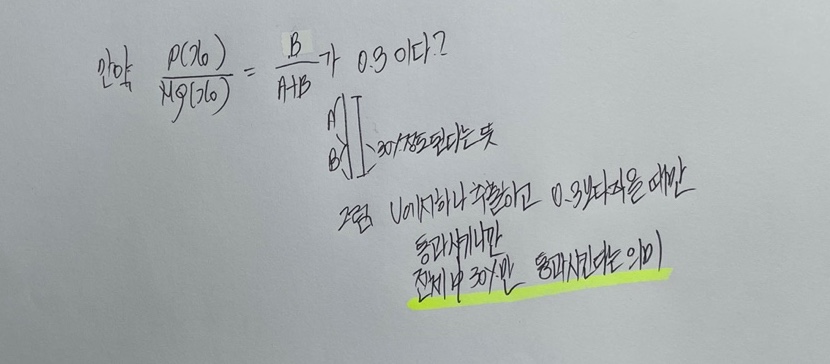 만약 P(x₀)/Mq(x₀) = B/A+B 가 0.3이다?
A
B 30%정도 된다는 뜻
그럼 U에서 하나 추출하고 0.3보다 작을 때만
통과시키니깐
전체 中 30%만 통과시킨다는 의미